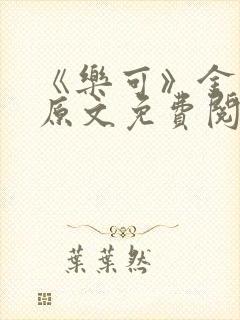 《樂可》全
原文免費閱
葉葉然